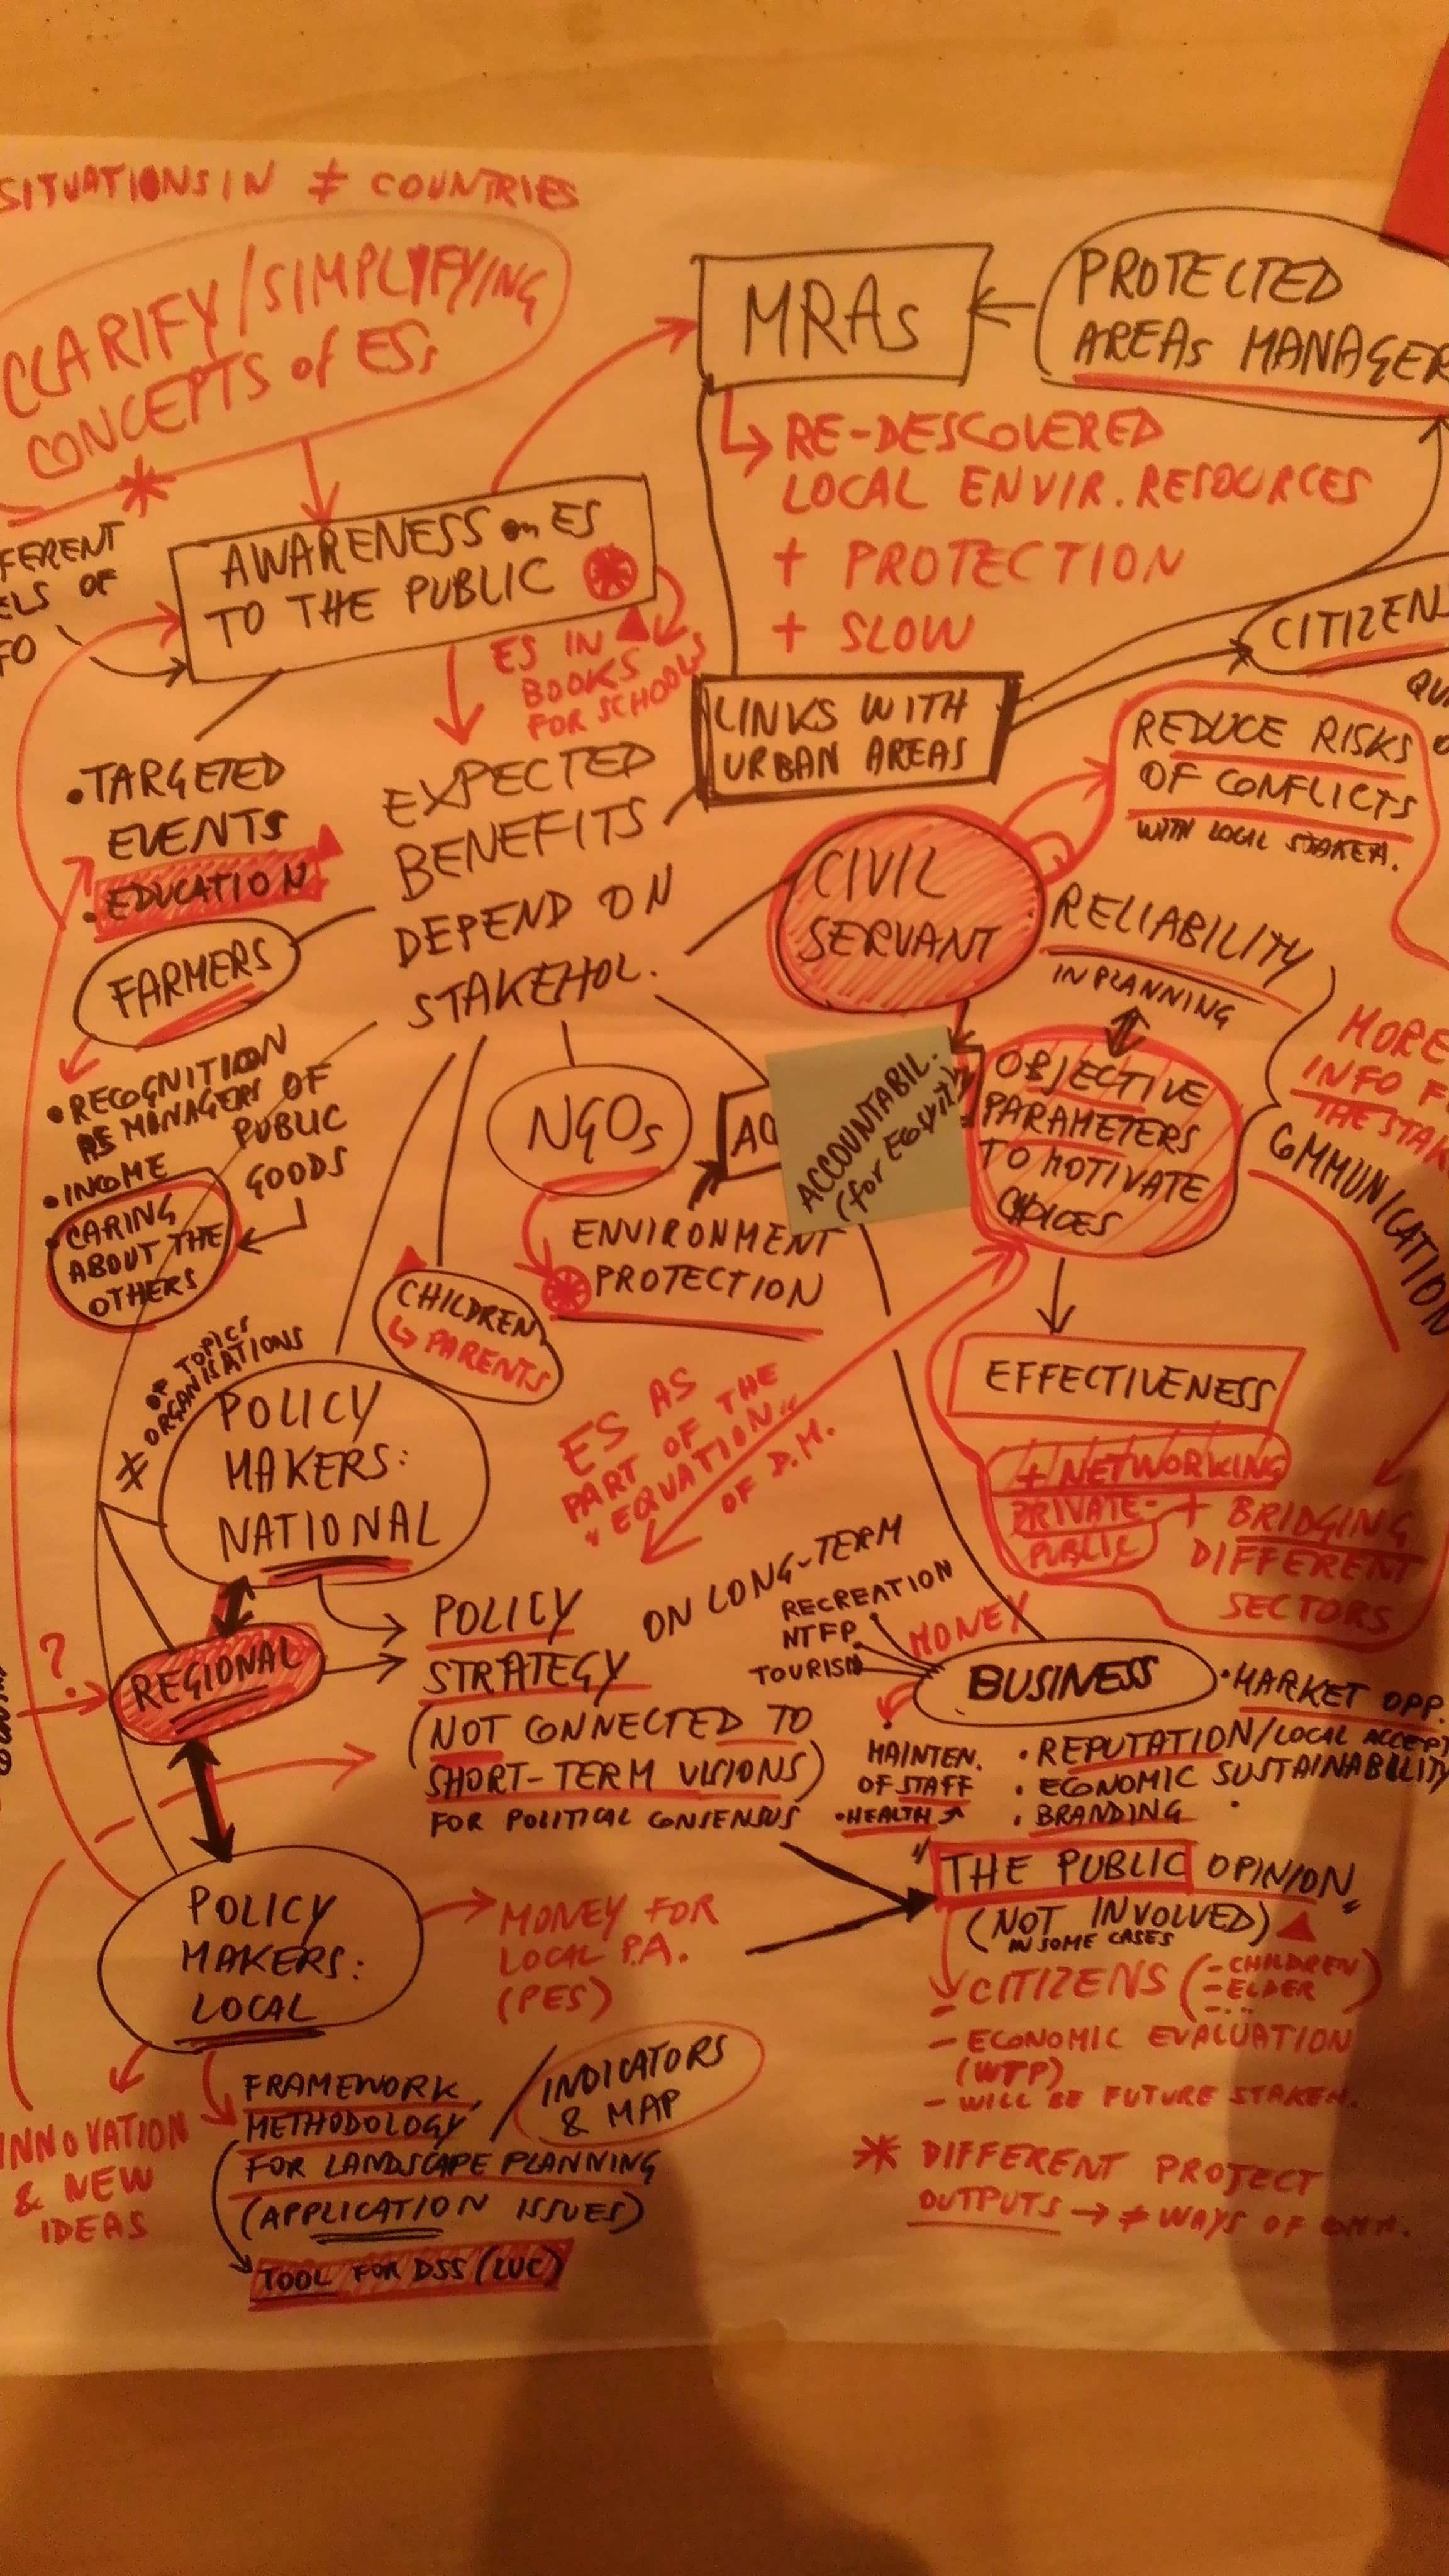 SITUATIONS IN ≠ COUNTRIES
CLARIFY/SIMPLYFYING
CONCEPTS of ESs
*
FERENT
ELS OF
FO
AWARENESS on ES
TO THE PUBLIC
ES IN
BOOKS
FOR SCHOOLS
MRAs
PROTECTED
AREAs MANAGER
RE-DESCOVERED
LOCAL ENVIR. RESOURCES
+ PROTECTION
+ SLOW
LINKS WITH
URBAN AREAS
CITIZEN
QU
REDUCE RISKS
OF CONFLICTS
WITH LOCAL STAKEH.
• TARGETED
EVENTS
• EDUCATION
EXPECTED
BENEFITS
DEPEND ON
STAKEHOL.
CIVIL
SERVANT
RELIABILITY
IN PLANNING
FARMERS
• RECOGNITION
AS MANAGERS OF
PUBLIC
GOODS
• INCOME
• CARING
ABOUT THE
OTHERS
NGOs
AC
ACCOUNTABIL.
(for Equity)
OBJECTIVE
PARAMETERS
TO MOTIVATE
CHOICES
MORE
INFO F
THE STAK
COMMUNICATION
ENVIRONMENT
PROTECTION
CHILDREN
↳ PARENTS
EFFECTIVENESS
+ NETWORKING
PRIVATE-
PUBLIC
+ BRIDGING
DIFFERENT
SECTORS
≠ OF TOPICS
ORGANISATIONS
POLICY
MAKERS:
NATIONAL
ES AS
PART OF THE
"EQUATION"
OF D.M.
?
REGIONAL
POLICY
STRATEGY
ON LONG-TERM
(NOT CONNECTED TO
SHORT-TERM VISIONS)
FOR POLITICAL CONSENSUS
RECREATION
NTFP
TOURISM
MONEY
BUSINESS
• MARKET OPP.
• REPUTATION/LOCAL ACCEPT
• ECONOMIC SUSTAINABILITY
• BRANDING
MAINTEN.
OF STAFF
• HEALTH
"THE PUBLIC OPINION"
(NOT INVOLVED)
IN SOME CASES
- CITIZENS (- CHILDREN
- ELDER
- ...)
- ECONOMIC EVALUATION
(WTP)
- WILL BE FUTURE STAKEH.
POLICY
MAKERS:
LOCAL
MONEY FOR
LOCAL P.A.
(PES)
INNOVATION
& NEW
IDEAS
FRAMEWORK
METHODOLOGY /
INDICATORS
& MAP
FOR LANDSCAPE PLANNING
(APPLICATION ISSUES)
TOOL FOR DSS (LUC)
* DIFFERENT PROJECT
OUTPUTS → ≠ WAYS OF COMM.